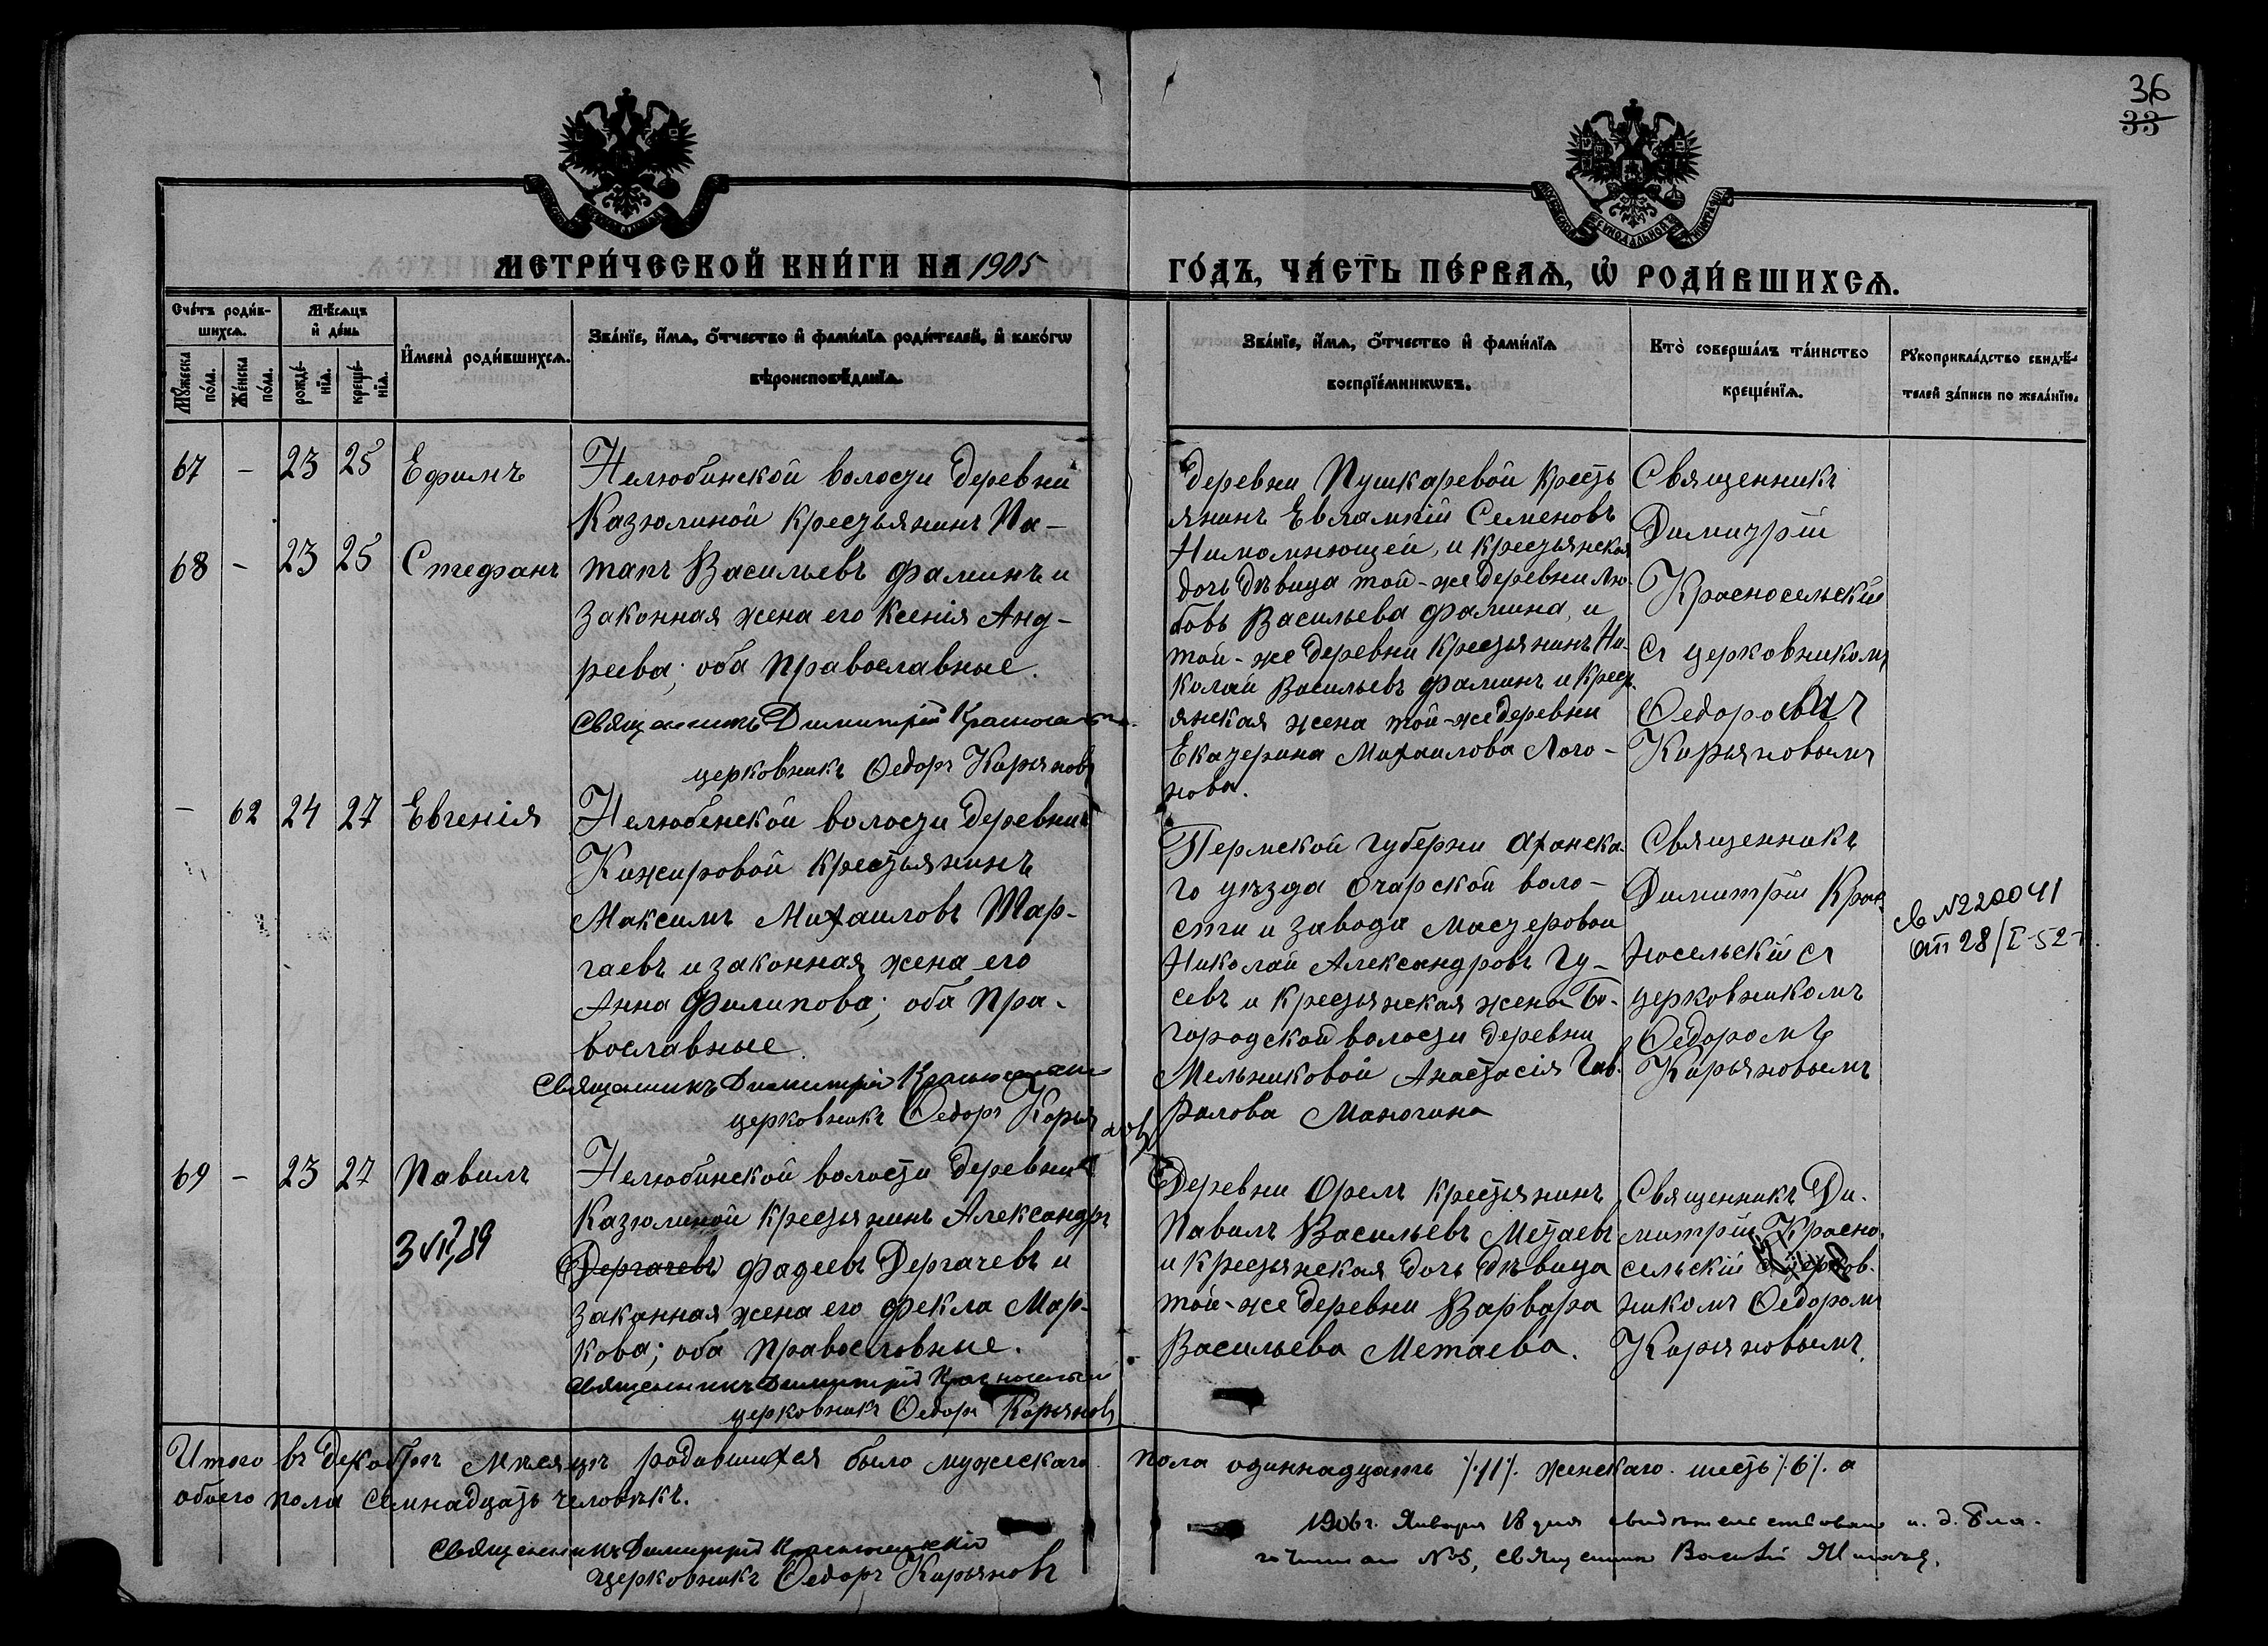 36
33
МЕТРИ́ЧЕСКОЙ КНИ́ГИ НА 1905
ГО́ДЪ, ЧА́СТЬ ПЕ́РВАѦ, Ѡ҆ РОДИ́ВШИХСѦ.
Сче́тъ роди́в-
шихсѧ.
Мꙋ́жеска по́ла.
Же́нска по́ла.
Мѣ́сѧцъ
и҆ де́нь
рожде́-
нїѧ.
креще́-
нїѧ.
И҆мена̀ роди́вшихсѧ.
Зва́нїе, и҆́мѧ, ѻ҆́тчество и҆ фами́лїѧ роди́телей, и҆ како́гѡ
вѣроисповѣ́данїѧ.
Зва́нїе, и҆́мѧ, ѻ҆́тчество и҆ фами́лїѧ
воспрїе́мникѡвъ.
Кто̀ соверша́лъ та́инство
креще́нїѧ.
Рꙋкоприкла́дство свидѣ́-
телей за́писи по жела́нїю.
67 - 23 25 Ефимъ
68 - 23 25 Стефанъ
Нелюбинской волости деревни
Казюлиной крестьянинъ По-
тапъ Васильевъ Фаминъ и
законная жена его Ксенія Анд-
реева; оба православные.
Священникъ Димитрій
церковникъ Ѳедоръ Карьяновъ
деревни Пушкаревой кресть
янинъ Евлампій Семеновъ
и крестьянская
дочь дѣвица той-же деревни Лю-
бовь Васильева Фамина, и
той-же деревни крестьянинъ Ни-
колай Васильевъ Фаминъ и крест-
янская жена той-же деревни
Екатерина Михаилова Лого-
нова.
Священникъ
Димитрій
Красносельскій
съ церковникомъ
Ѳедоромъ
Карьяновымъ
- 62 24 27 Евгенія
Нелюбинской волости деревни
Кижировой крестьянинъ
Максимъ Михаиловъ Шар-
гаевъ и законная жена его
Анна Филипова; оба пра-
вославные.
Священникъ Димитрій
церковникъ Ѳедоръ Карьяновъ
Пермской губерни Аханска-
го уѣзда Очарской воло-
сти и завода мастеровой
Николай Александровъ Гу-
севъ и крестьянская жена Бо-
городской волости деревни
Мельниковой Анастасія Гав-
рилова Манюгина
Священникъ
Димитрій Крас-
носельскій съ
церковникомъ
Ѳедоромъ
Карьяновымъ
св №220041
от 28/I-52 г.
69 - 23 27 Павилъ
3 VII,89
Нелюбинской волости деревни
Казюлиной крестьянинъ Александръ
Дергачевъ Фадеевъ Дергачевъ и
законная жена его Фекла Мар-
кова; оба православные.
Священникъ Димитрій Красносельскій
церковникъ Ѳедоръ Карьяновъ
Деревни Орелъ крестьянинъ
Павилъ Васильевъ Метаевъ
и крестьянская дочь дѣвица
той-же деревни Варвара
Васильева Метаева.
Священникъ Ди-
митрій Красно-
сельскій церков-
никомъ Ѳедоромъ
Карьяновымъ.
Итого въ декабрѣ мѣсяцѣ родившихся было мужескаго пола одиннадцать /.11/. женскаго шесть /.6/. а
обоего пола семнадцать человѣкъ.
Священникъ Димитрій Красносельскій
церковникъ Ѳедоръ Карьяновъ
1906 г. Января 18 дня свидѣтельствовалъ и. д. Бла-
гочиннаго №5, священникъ Василій